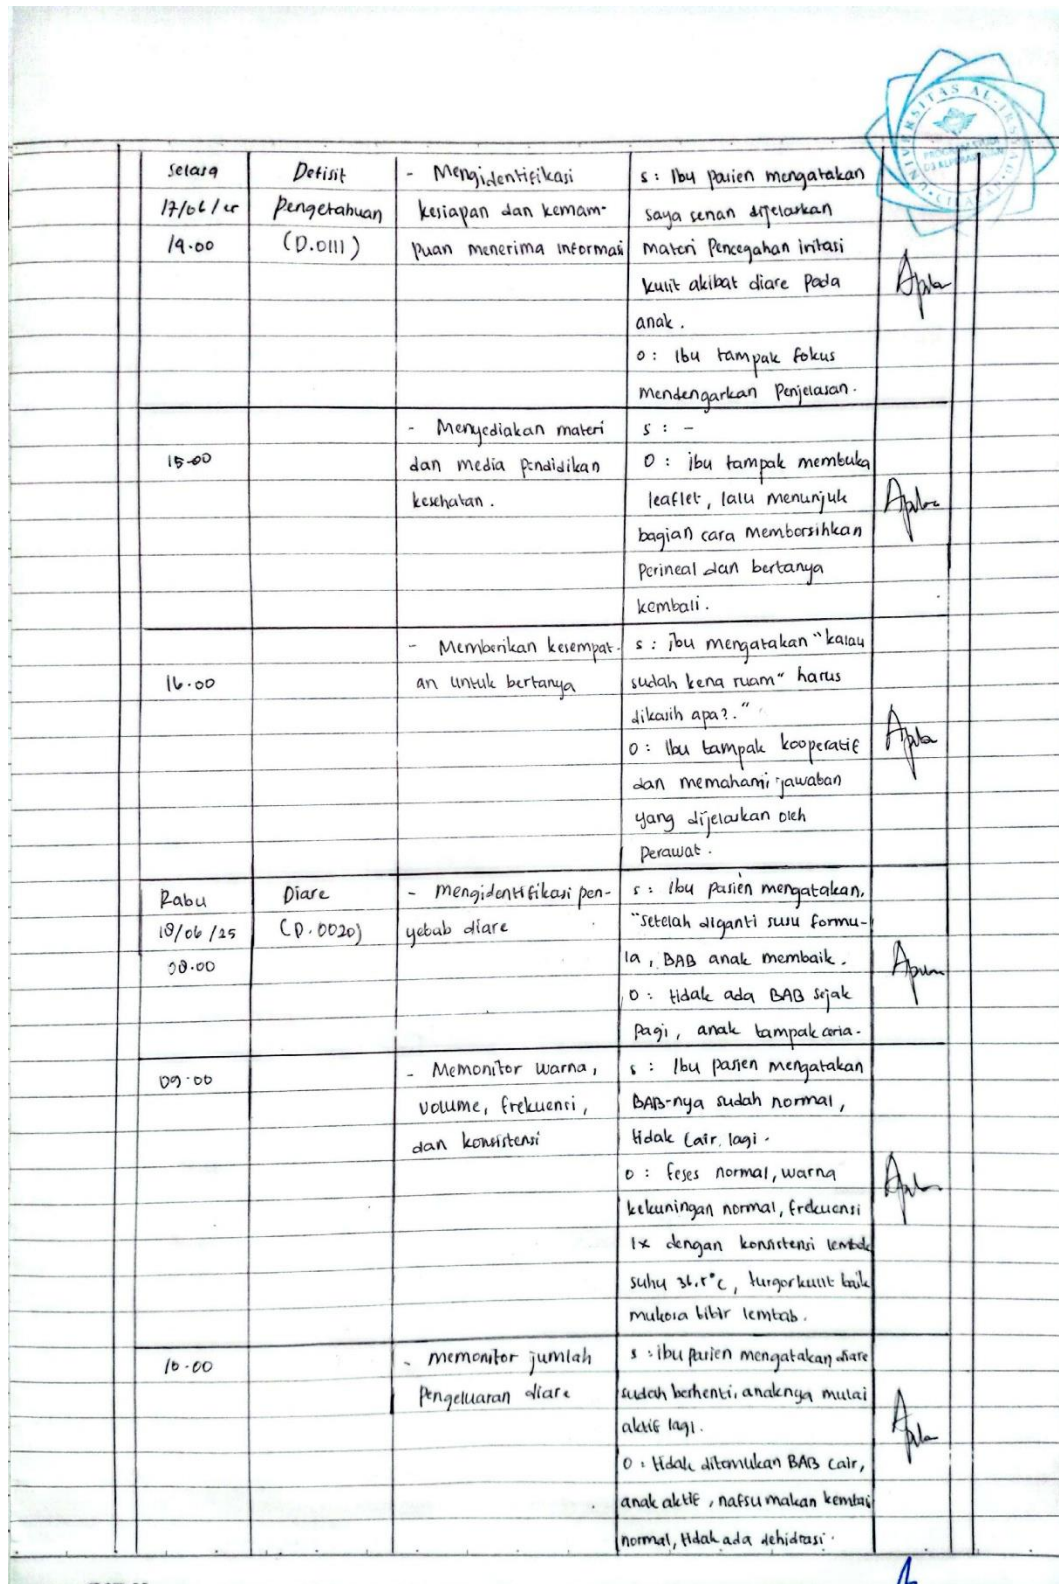 UNIVERSITAS AL-IRSYAD
PROGRAM STUDI
D3 KEPERAWATAN
CILACAP
Selasa
17/06/25
14.00
Defisit
Pengetahuan
(D.0111)
- Mengidentifikasi
kesiapan dan kemam-
puan menerima informasi
s : Ibu pasien mengatakan
saya senan dijelaskan
materi Pencegahan iritasi
kulit akibat diare pada
anak .
o : Ibu tampak fokus
mendengarkan Penjelasan .
15.00
- Menyediakan materi
dan media pendidikan
kesehatan .
s : -
O : ibu tampak membuka
leaflet , lalu menunjuk
bagian cara membersihkan
Perineal dan bertanya
kembali .
16.00
- Memberikan kesempat-
an untuk bertanya
s : ibu mengatakan "kalau
sudah kena ruam" harus
dikasih apa? ."
o : Ibu tampak kooperatif
dan memahami jawaban
yang dijelaskan oleh
perawat .
Rabu
18/06/25
08.00
Diare
(D.0020)
- mengidentifikasi pen-
yebab diare
s : Ibu pasien mengatakan,
"setelah diganti susu formu-
la , BAB anak membaik .
O : tidak ada BAB sejak
pagi , anak tampak ceria .
09.00
- Memonitor warna ,
volume, frekuensi ,
dan konsistensi
s : Ibu pasien mengatakan
BAB-nya sudah normal ,
tidak cair lagi .
o : feses normal, warna
kekuningan normal, frekuensi
1x dengan konsistensi lembek
suhu 36.5°C , turgor kulit baik
mukosa bibir lembab .
10.00
- memonitor jumlah
pengeluaran diare
s : ibu pasien mengatakan diare
sudah berhenti, anaknya mulai
aktif lagi .
O : tidak ditemukan BAB cair,
anak aktif , nafsu makan kembali
normal, tidak ada dehidrasi .